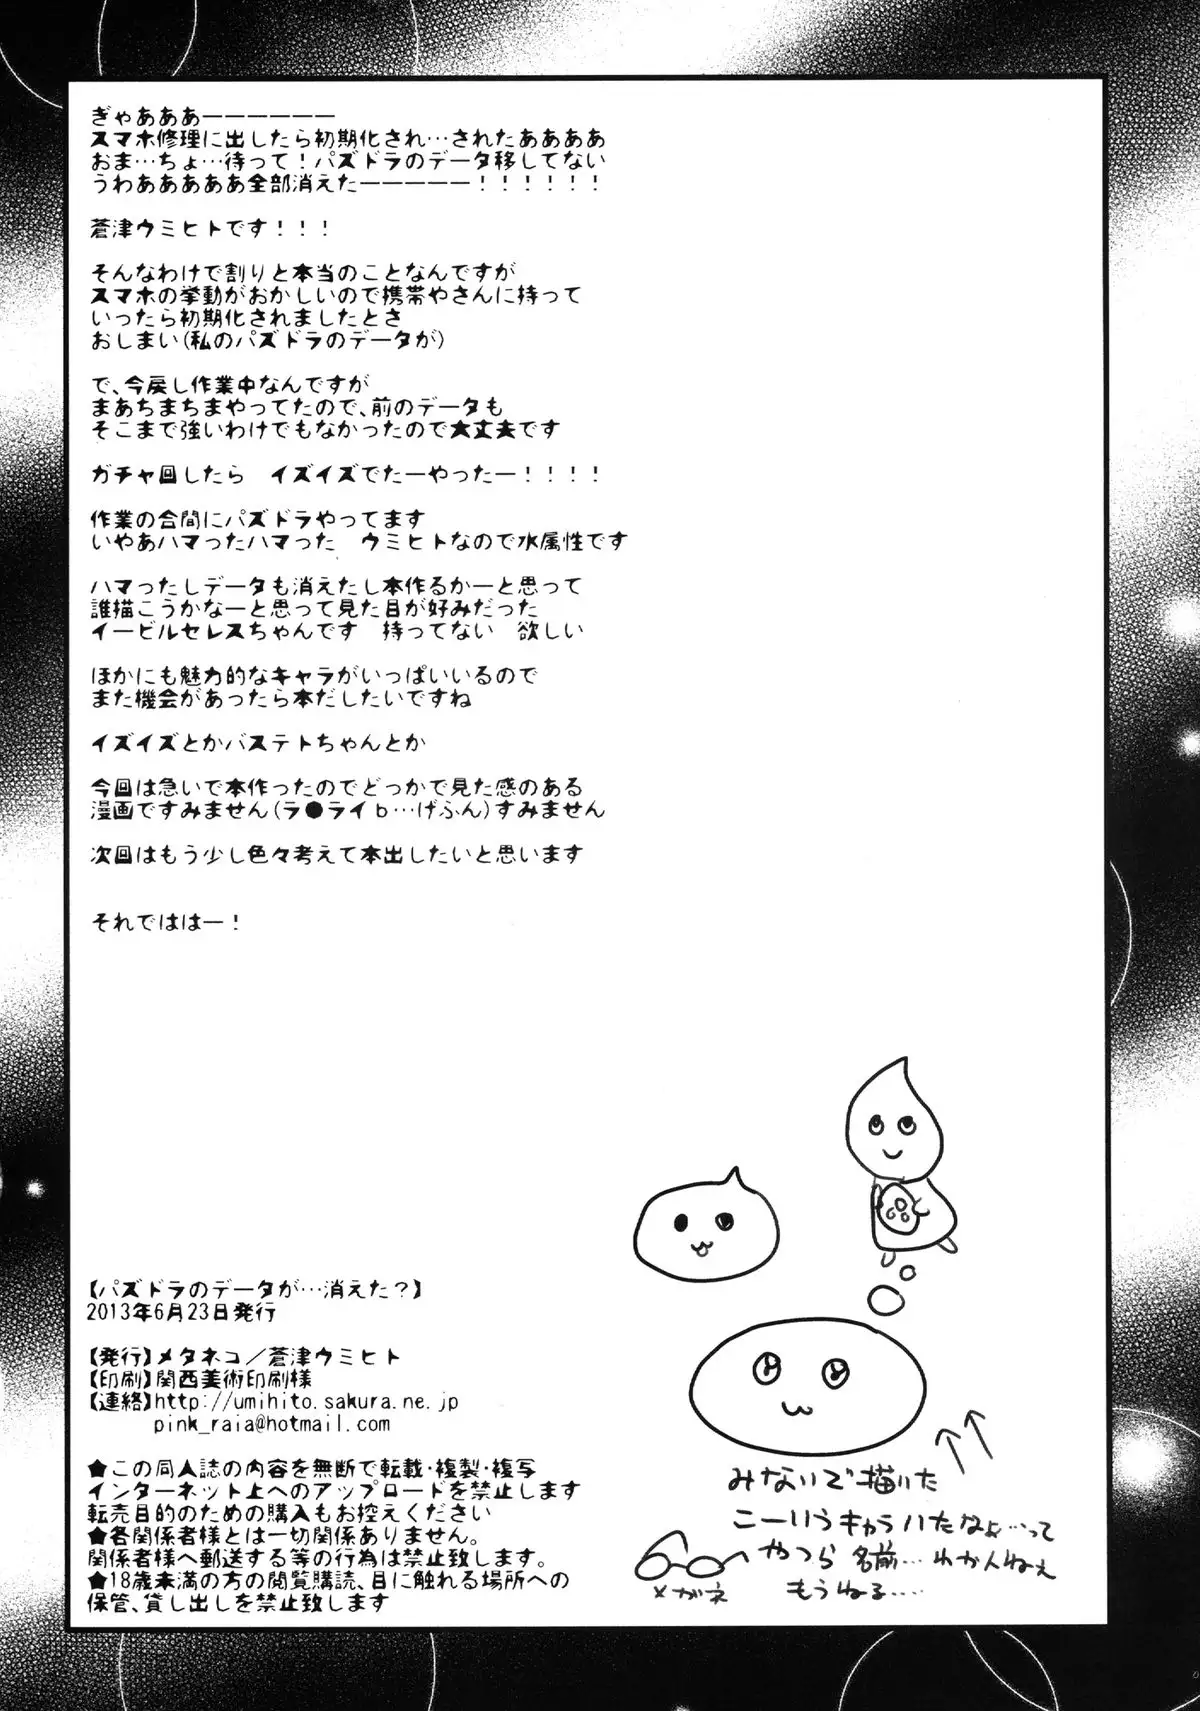 ぎゃあああーーーーーー
スマホ修理に出したら初期化され…されたああああ
おま…ちょ…待って！パズドラのデータ移してない
うわあああああ全部消えたーーーーー！！！！！！
蒼津ウミヒトです！！！
そんなわけで割りと本当のことなんですが
スマホの挙動がおかしいので携帯やさんに持って
いったら初期化されましたとさ
おしまい(私のパズドラのデータが)
で、今戻し作業中なんですが
まあちまちまやってたので、前のデータも
そこまで強いわけでもなかったので大丈夫です
ガチャ回したら　イズイズでたーやったー！！！！
作業の合間にパズドラやってます
いやあハマったハマった　ウミヒトなので水属性です
ハマったしデータも消えたし本作るかーと思って
誰描こうかなーと思って見た目が好みだった
イービルセレスちゃんです　持ってない　欲しい
ほかにも魅力的なキャラがいっぱいいるので
また機会があったら本だしたいですね
イズイズとかバステトちゃんとか
今回は急いで本作ったのでどっかで見た感のある
漫画ですみません(ラ●ライb…げふん)すみません
次回はもう少し色々考えて本出したいと思います
それでははー！
【パズドラのデータが…消えた？】
2013年6月23日発行
【発行】メタネコ／蒼津ウミヒト
【印刷】関西美術印刷様
【連絡】http://umihito.sakura.ne.jp
pink_raia@hotmail.com
★この同人誌の内容を無断で転載・複製・複写
インターネット上へのアップロードを禁止します
転売目的のための購入もお控えください
★各関係者様とは一切関係ありません。
関係者様へ郵送する等の行為は禁止致します。
★18歳未満の方の閲覧購読、目に触れる場所への
保管、貸し出しを禁止致します
みないで描いた
こーいうキャラいたなぁ…って
やつら 名前…わかんねぇ
もうねる……
メガネ